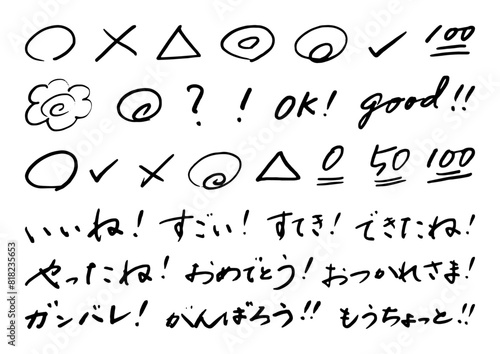 100
? ! OK! good!!
0 50 100
いいね! すごい! すてき! できたね!
やったね! おめでとう! おつかれさま!
ガンバレ! がんばろう!! もうちょっと!!
Adobe Stock | #818235653